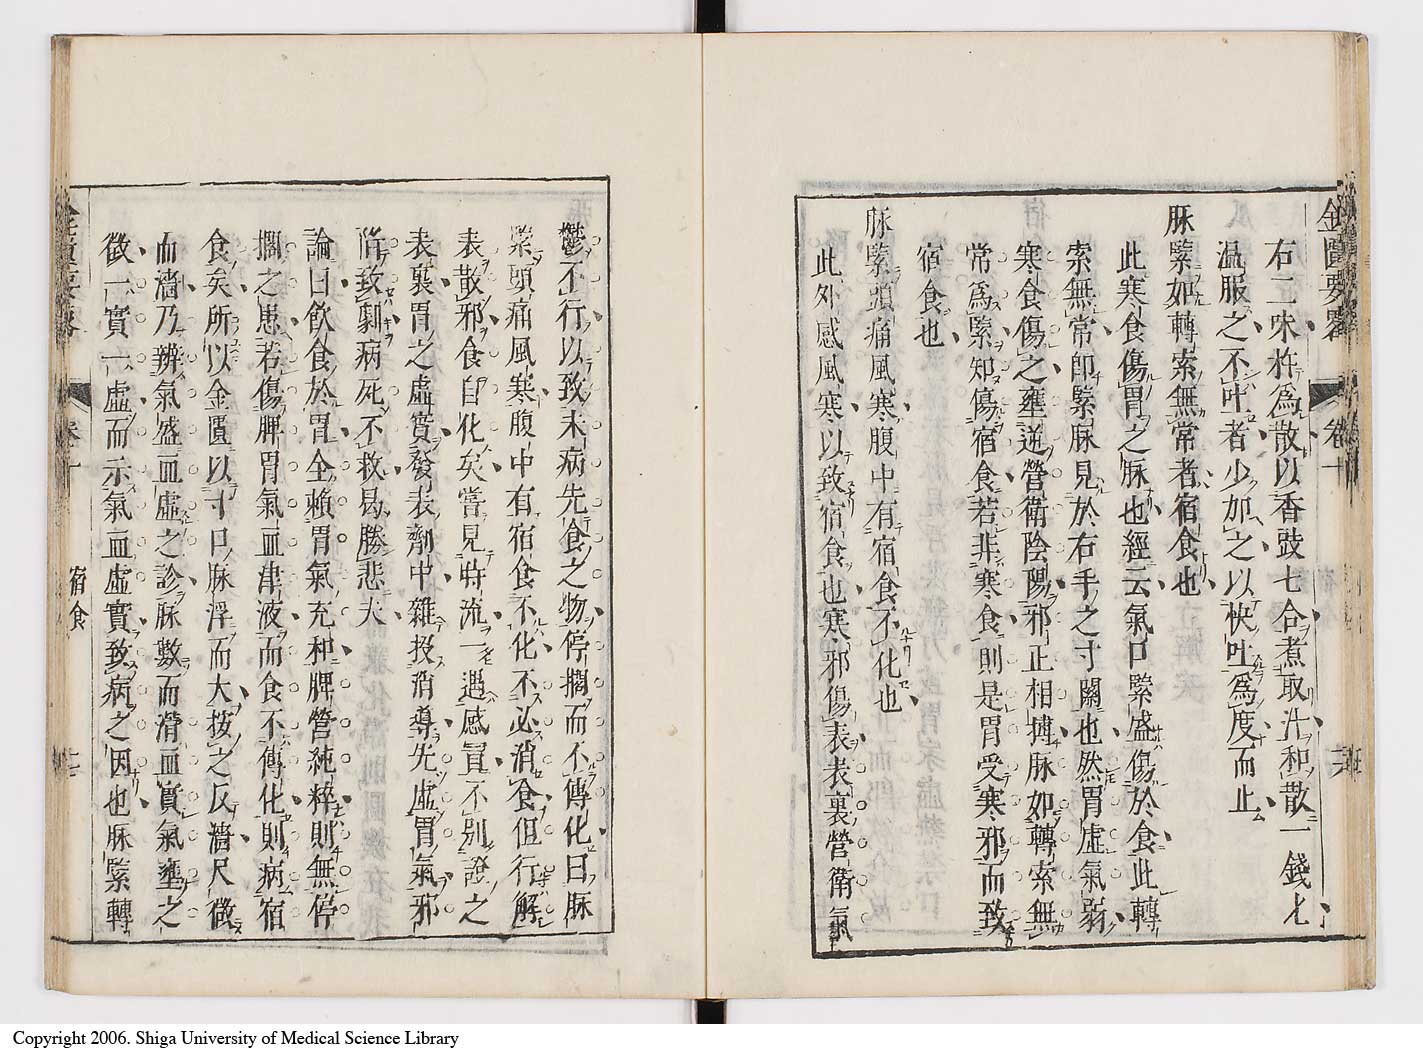 金匱要畧 卷十
右二味杵爲散以香豉七合煮取汁和散一錢匕
温服之不吐者少加之以快吐爲度而止
脉緊如轉索無常者宿食也
此寒食傷胃之脉也經云氣口緊盛傷於食此轉
索無常卽緊脉見於右手之寸關也然胃虛氣弱
寒食傷之壅逆營衛陰陽邪正相搏脉如轉索無
常爲緊知傷宿食若非寒食則是胃受寒邪而致
宿食也
脉緊頭痛風寒腹中有宿食不化也
此外感風寒以致宿食也寒邪傷表表裏營衛氣
鬱不行以致未病先食之物停擱而不傳化曰脉
緊頭痛風寒腹中有宿食不化不必消食但行解
表散邪食自化矣嘗見時流一遇感冒不別證之
表裏胃之虛實發表劑中雜投消導先虛胃氣邪
陷致劇病死不救曷勝悲夫
論曰飲食於胃全賴胃氣充和脾營純粹則無停
擱之患若傷脾胃氣血津液而食不傳化則病宿
食矣所以金匱以寸口脉浮而大按之反濇尺微
而濇乃辨氣盛血虛之診脉數而滑血實氣壅之
徵一實一虛而示氣血虛實致病之因也脉緊轉
金匱要畧 卷十 宿食
Copyright 2006. Shiga University of Medical Science Library